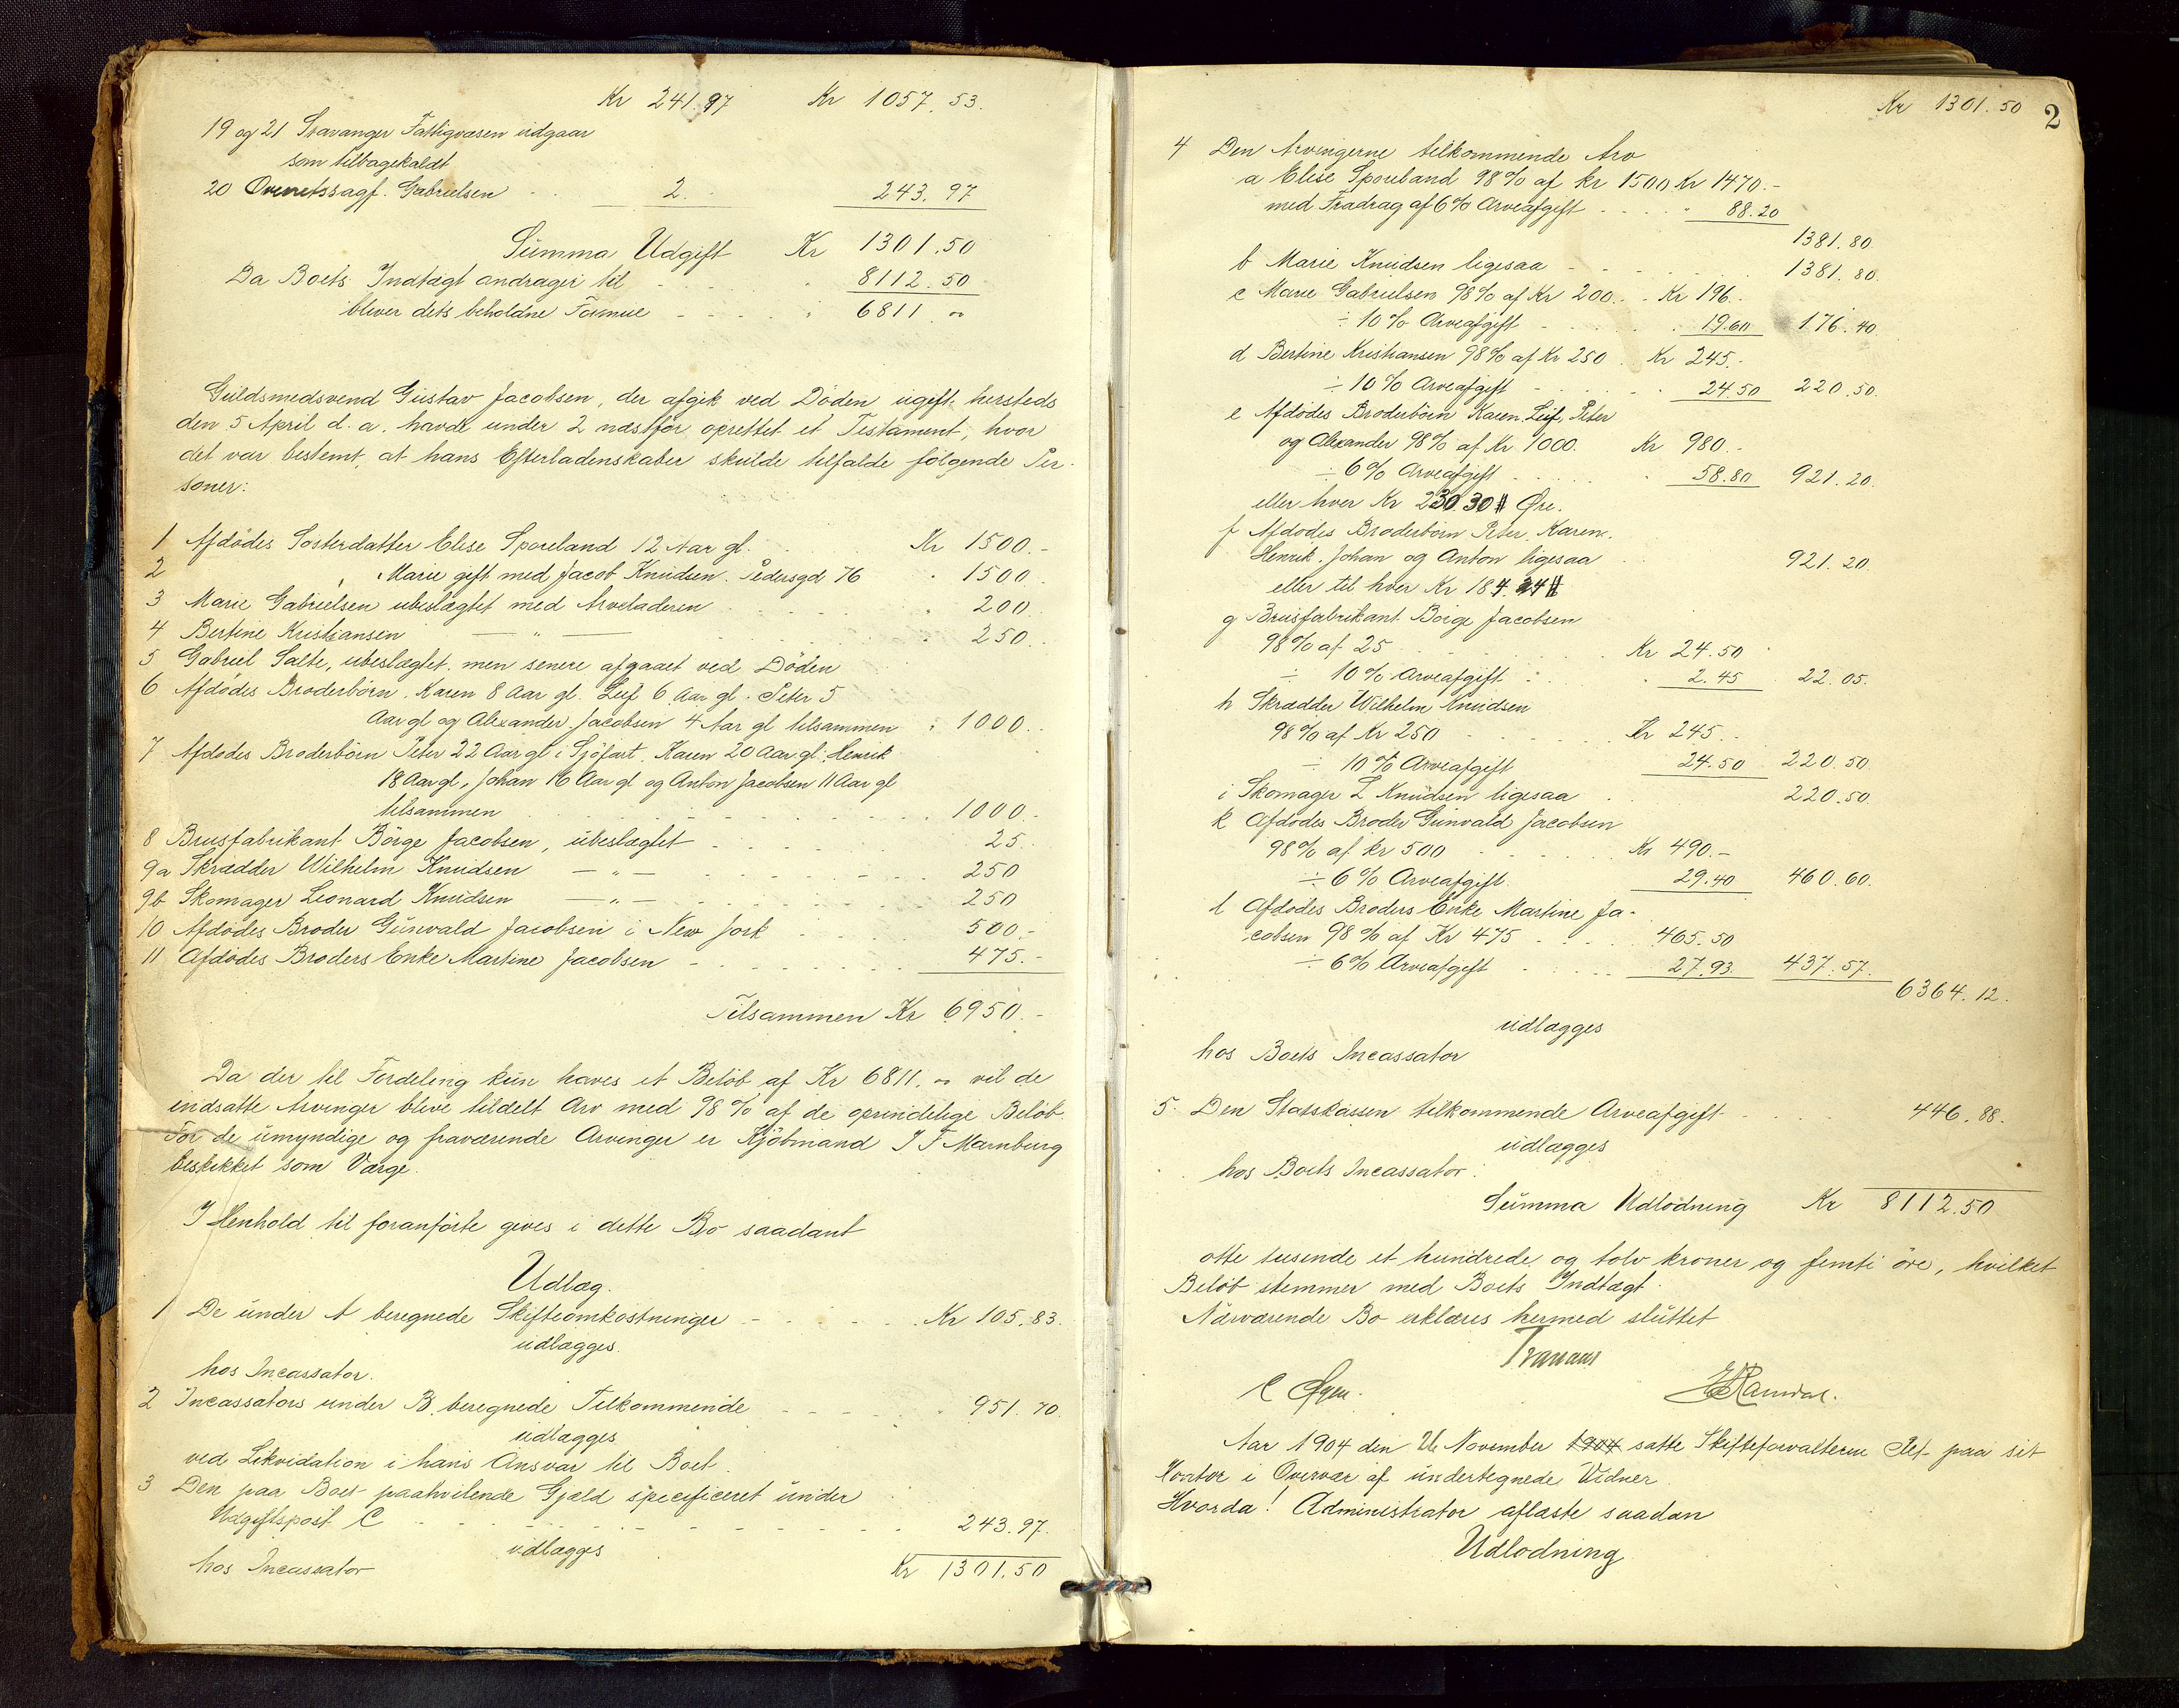 Kr 241.97 Kr 1057.53.
19 og 21 Stavanger Fattigvæsen udgaar
som tilbagekaldt
20 Overretssagf. Gabrielsen 2. 243.97
Summa Udgift Kr 1301.50
Da Boets Indtægt andrager til 8112.50
bliver dets beholdne Formue 6811.
Guldsmedsvend Gustav Jacobsen, der afgik ved Döden ugift hersteds
den 5 April d. a. havde under 2 næstfør oprettet et Testament, hvor
det var bestemt, at hans Efterladenskaber skulde tilfalde følgende Per-
soner:
1 Afdödes Søsterdatter Elise Sporeland 12 Aar gl. Kr 1500.-
2 " Marie gift med Jacob Knudsen. Pedersgd 76 " 1500.
3 Marie Gabrielsen ubeslægtet med Arveladeren " 200.
4 Bertine Kristiansen — " — " 250.
5 Gabriel Salte, ubeslægtet, men senere afgaaet ved Döden
6 Afdödes Broderbörn. Karen 8 Aar gl. Leif 6 Aar gl. Peter 5
Aar gl og Alexander Jacobsen 4 Aar gl tilsammen " 1000.
7 Afdödes Broderbörn Peter 22 Aar gl i Sjöfart. Karen 20 Aar gl. Henrik
18 Aar gl, Johan 16 Aar gl og Anton Jacobsen 11 Aar gl
tilsammen 1000.-
8 Brusfabrikant Börge Jacobsen, ubeslægtet 25.
9a Skrædder Wilhelm Knudsen — " — 250
9b Skomager Leonard Knudsen — " — 250
10 Afdödes Broder Gunvald Jacobsen i New York 500.-
11 Afdödes Broders Enke Martine Jacobsen 475.-
Tilsammen Kr 6950.-
Da der til Fordeling kun haves et Belöb af Kr 6811. vil de
indsatte Arvinger blive tildelt Arv med 98 % af de oprindelige Belöb.
For de umyndige og fraværende Arvinger er Kjöbmand J F Marnburg
beskikket som Værge.
I Henhold til foranförte gives i dette Bo saadant
Udlæg.
1 De under A beregnede Skifteomkostninger Kr 105.83.
udlægges
hos Incassator.
2 Incassators under B. beregnede Tilkommende 951.70.
udlægges
ved Likvidation i hans Ansvar til Boet.
3 Den paa Boet paahvilende Gjæld specificeret under
Udgiftspost C 243.97.
udlægges
hos Incassator Kr 1301.50
Kr 1301.50 2
4 Den Arvingerne tilkommende Arv
a Elise Sporeland 98 % af kr 1500 Kr 1470.-
med Fradrag af 6 % Arveafgift 88.20
1381.80.
b Marie Knudsen ligesaa 1381.80.
c Marie Gabrielsen 98 % af Kr 200. Kr 196.
÷ 10 % Arveafgift 19.60 176.40
d Bertine Kristiansen 98 % af Kr 250 Kr 245.-
÷ 10 % Arveafgift 24.50 220.50.
e Afdödes Broderbörn Karen. Leif. Peter
og Alexander 98 % af Kr 1000. Kr 980.-
÷ 6 % Arveafgift 58.80 921.20.
eller hver Kr 230.30 Øre.
f Afdødes Broderbörn Peter. Karen.
Henrik. Johan og Anton ligesaa 921.20.
eller til hver Kr 184.24
g Brusfabrikant Börge Jacobsen
98 % af 25 Kr 24.50
÷ 10 % Arveafgift 2.45 22.05.
h Skrædder Wilhelm Knudsen
98 % af Kr 250 Kr 245.-
÷ 10 % Arveafgift 24.50 220.50.
i Skomager L Knudsen ligesaa 220.50.
k Afdödes Broder Gunvald Jacobsen
98 % af kr 500 Kr 490.-
÷ 6 % Arveafgift 29.40 460.60.
l Afdödes Broders Enke Martine Ja-
cobsen 98 % af Kr 475 465.50
÷ 6 % Arveafgift 27.93. 437.57.
6364.12.
udlægges
hos Boets Incassator
5. Den Statskassen tilkommende Arveafgift 446.88.
udlægges
hos Boets Incassator.
Summa Udlodning Kr 8112.50
otte tusende et hundrede og tolv kroner og femti öre, hvilket
Belöb stemmer med Boets Indtægt.
Nærværende Bo erklæres hermed sluttet
Aar 1904 den 26 November 1904 satte Skifteforvalteren Ret paa sit
Kontor i Overvær af undertegnede Vidner.
Hvorda! Administrator aflæste saadan
Udlodning